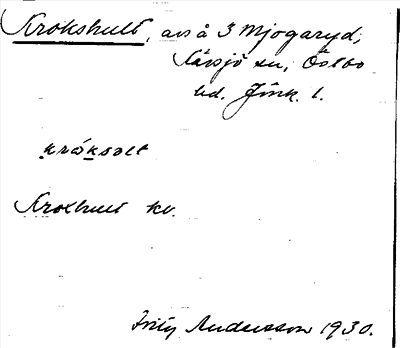 Krokshult, avs å 3 Mjogaryd,
Kävsjö sn, Östbo
hd. Jönk. l.
krȯksolt
Krokhult kv.
Fritz Andersson 1930.